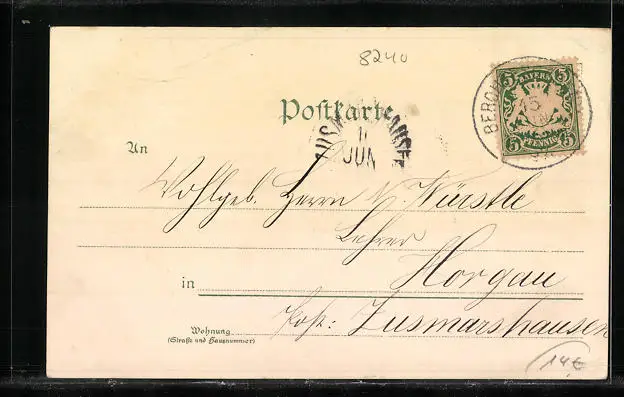 8240
5 BAYERN 5
5 PFENNIG 5
BERG
15
JUN
Postkarte
11
JUN
An
Wohlgeb. Herrn N. Würstle
Lehrer
in Horgau
Post: Zusmarshausen
Wohnung
(Straße und Hausnummer)
14€